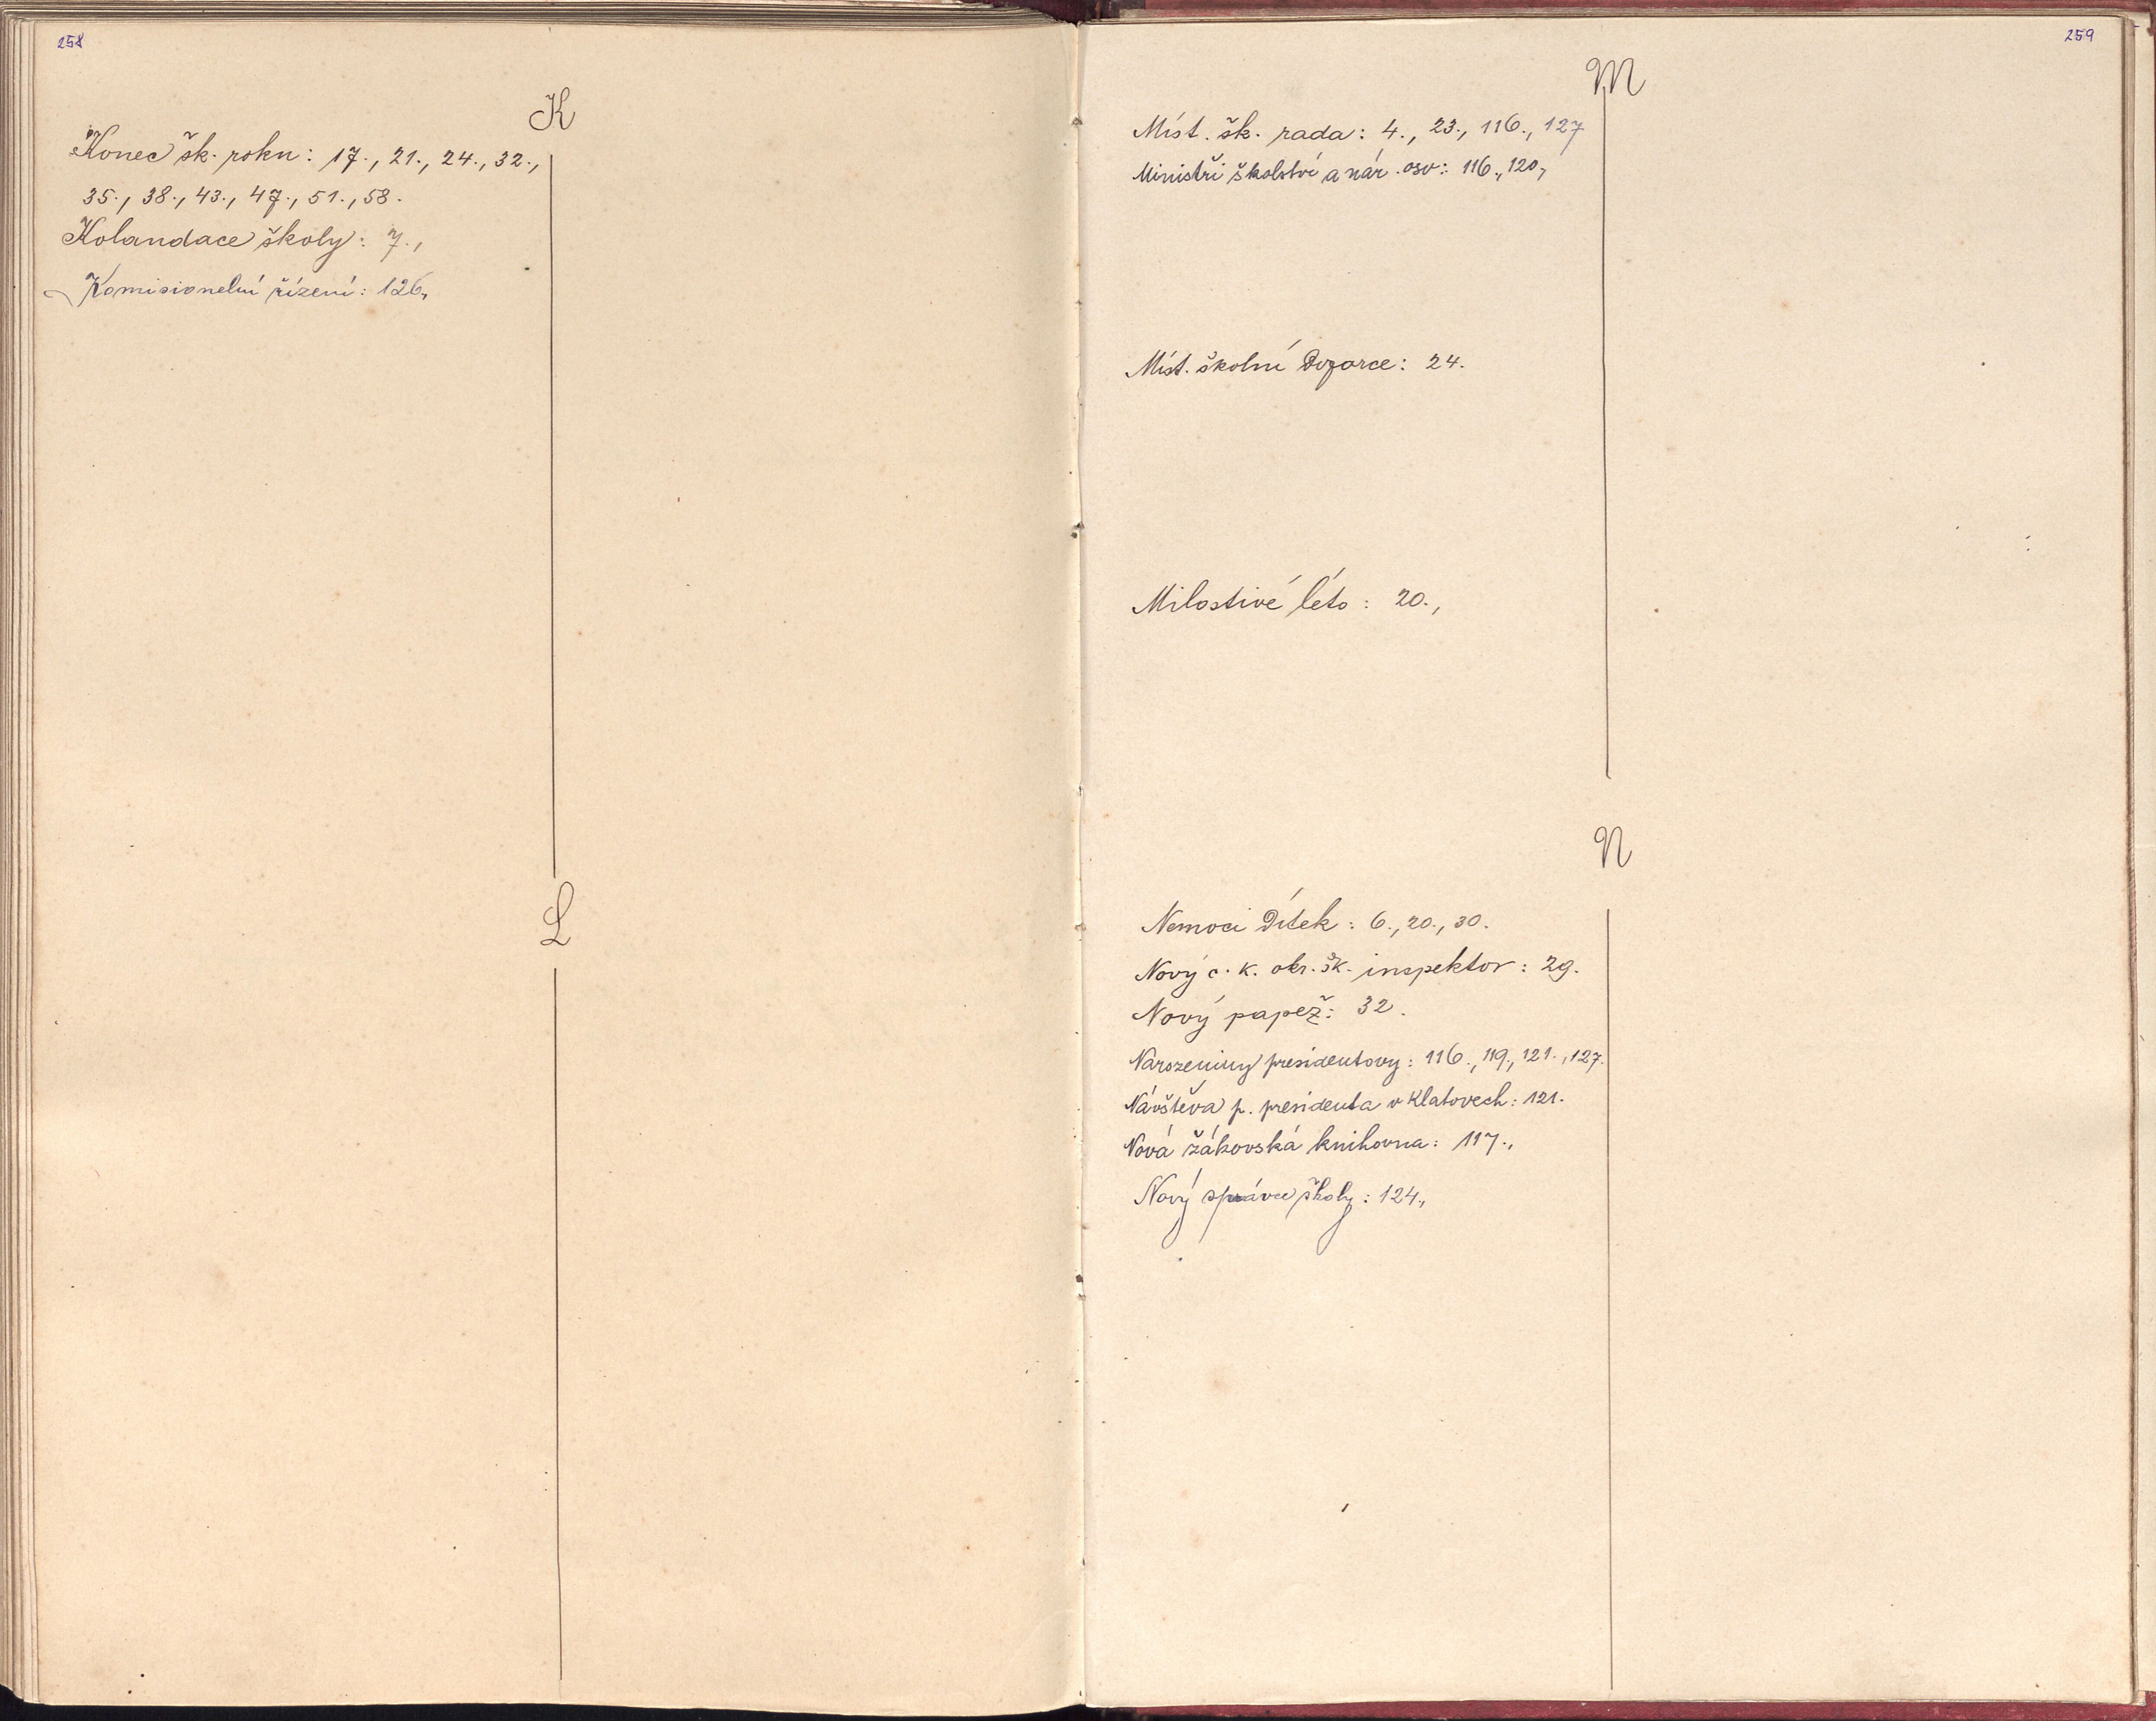 258
K
Konec šk. roku: 17., 21., 24., 32.,
35., 38., 43., 47., 51., 58.
Kolandace školy: 7.,
Komisionelní řízení: 126.,
L
259
M
Míst. šk. rada: 4., 23., 116., 127
Ministři školství a nár. osv.: 116., 120.,
Míst. školní Dozorce: 24.
Milostivé léto: 20.,
N
Nemoci Dítek: 6., 20., 30.
Nový c. k. okr. šk. inspektor: 29.
Nový papež: 32.
Narozeniny presidentovy: 116., 119., 121., 127.
Návštěva p. presidenta v Klatovech: 121.
Nová žákovská knihovna: 117.,
Nový správce školy: 124.,